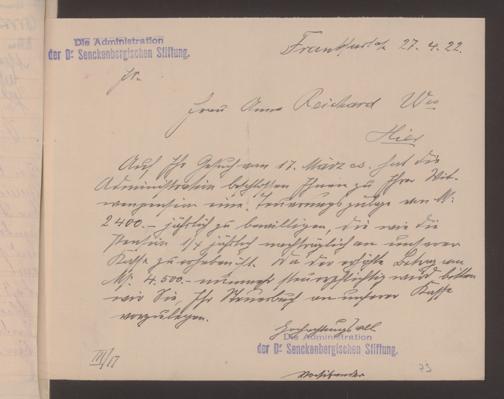 Die Administration
der Dr Senckenbergischen Stiftung.
Frankfurt a/M, 27.4.22.
Frau Anna Reichard Wwe
Hier
Auf Ihr Gesuch vom 17. März cr. hat die
Administration beschlossen Ihnen zu Ihrer Wit-
wenpension eine Teuerungszulage von M.
2400.- jährlich zu bewilligen, die wie die
Pension 1/4 jährlich nachträglich an unserer
Kasse zu erheben ist. Da der erhöhte Betrag von
M. 4.500.- nunmehr steuerpflichtig wird, bitten
wir Sie, Ihr Steuerbuch an unserer Kasse
vorzulegen.
Hochachtungsvoll
Die Administration
der Dr Senckenbergischen Stiftung.
Vorsitzender